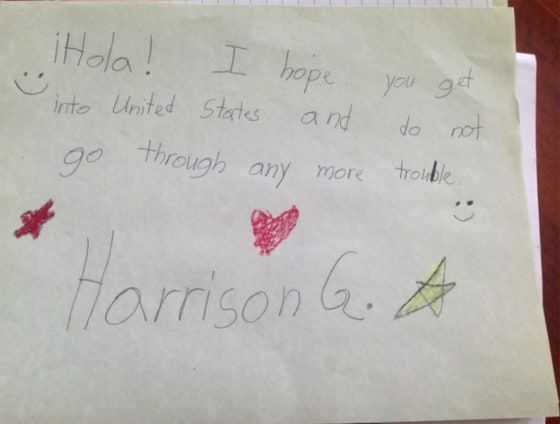 ¡Hola! I hope you get
into United States and do not
go through any more trouble.
Harrison G.